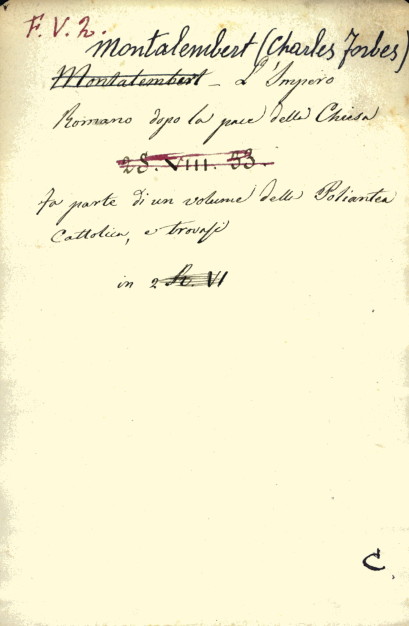 F. V. 2.
Montalembert (Charles Forbes)
Montalembert – L'Impero
Romano dopo la pace della Chiesa
2 S. VIII. 53.
Fa parte di un volume della Poliantea
Cattolica, e trovasi
in 2 VI
C.